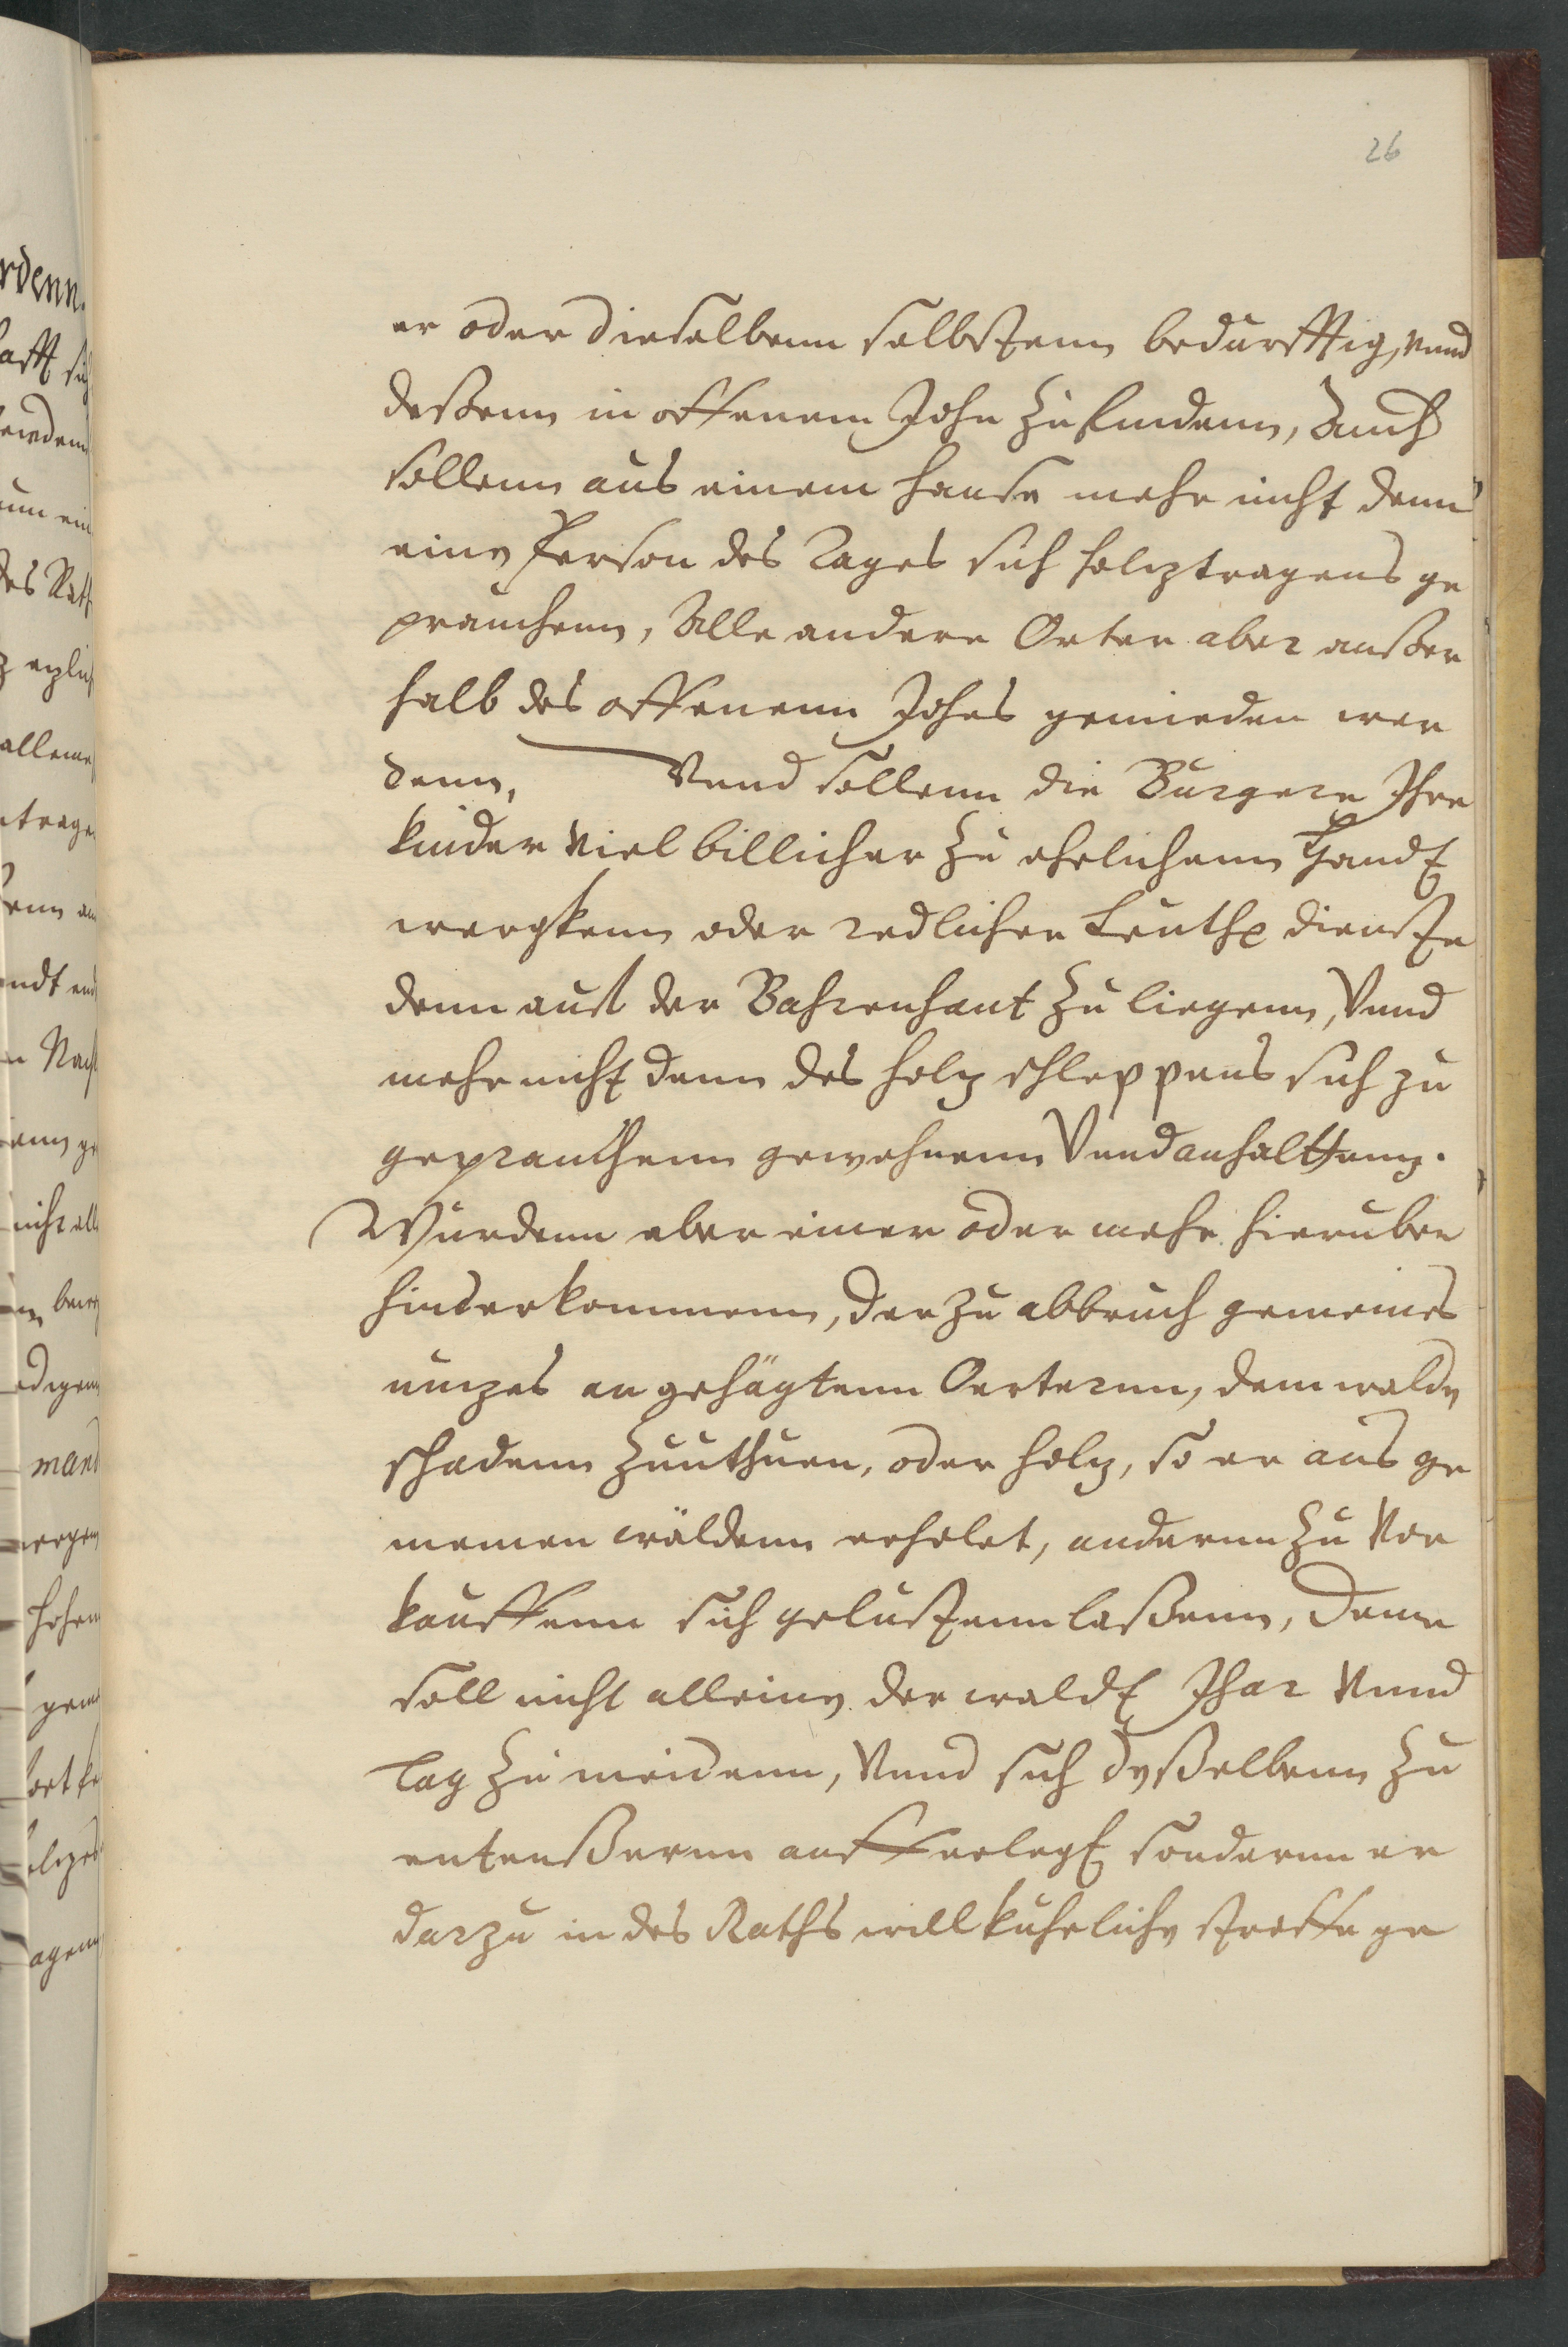 26
er oder dieselbenn selbstenn bedurfftig, vnnd
deßenn in offenem Johr zu findenn, Auch
sollenn aus einem hause mehr nicht denn
eine Person des Tages sich holztragens ge
prauchenn, Alle andere Orter aber außer
halb des offenenn Johes gemieden wer
denn, Vnnd sollenn die Burgere Ihre
kinder viel billicher zu ehrlichenn Handt
wergkenn oder redlicher Leuthe dienste
denn auf der Bahrenhaut zu liegenn, Vnnd
mehr nicht denn des holz schleppens sich zu
geprauchenn gewehnenn Vnnd anhalttenn.
Wurdenn aber einer oder mehr hieruber
hinderkommenn, der zu abbruch gemeines
nuzes an gehägtenn Oerternn, dem walde
schadenn zuuthuen, oder holz, so er aus ge
meinen wäldenn erholet, andernn zu vor
kauffenn sich gelustenn laßenn, deme
soll nicht alleine der waldt Jhar vnnd
tag zu meidenn, vnnd sich deßelbenn zu
enteußernn aufferlegt sondernn er
darzu in des Raths willkuhrliche straffe ge